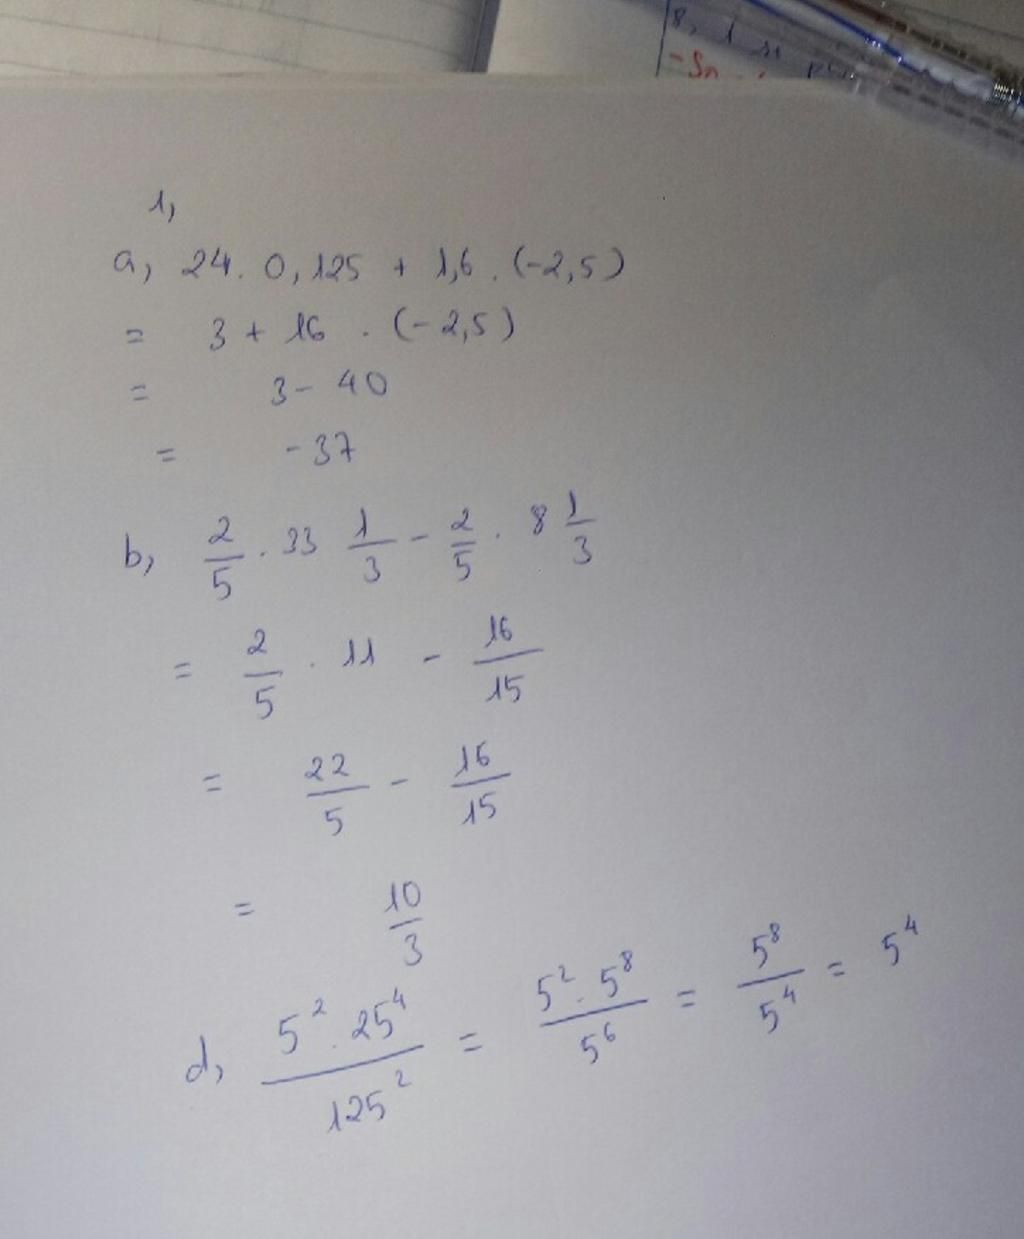 8, 1
1,
a, 24. 0,125 + 1,6 . (-2,5)
= 3 + 16 . (-2,5)
= 3 - 40
= -37
b, 2/5 . 33 1/3 - 2/5 . 8 1/3
= 2/5 . 11 - 16/15
= 22/5 - 16/15
= 10/3
d, 5² . 25⁴ / 125² = 5² . 5⁸ / 5⁶ = 5⁸ / 5⁴ = 5⁴